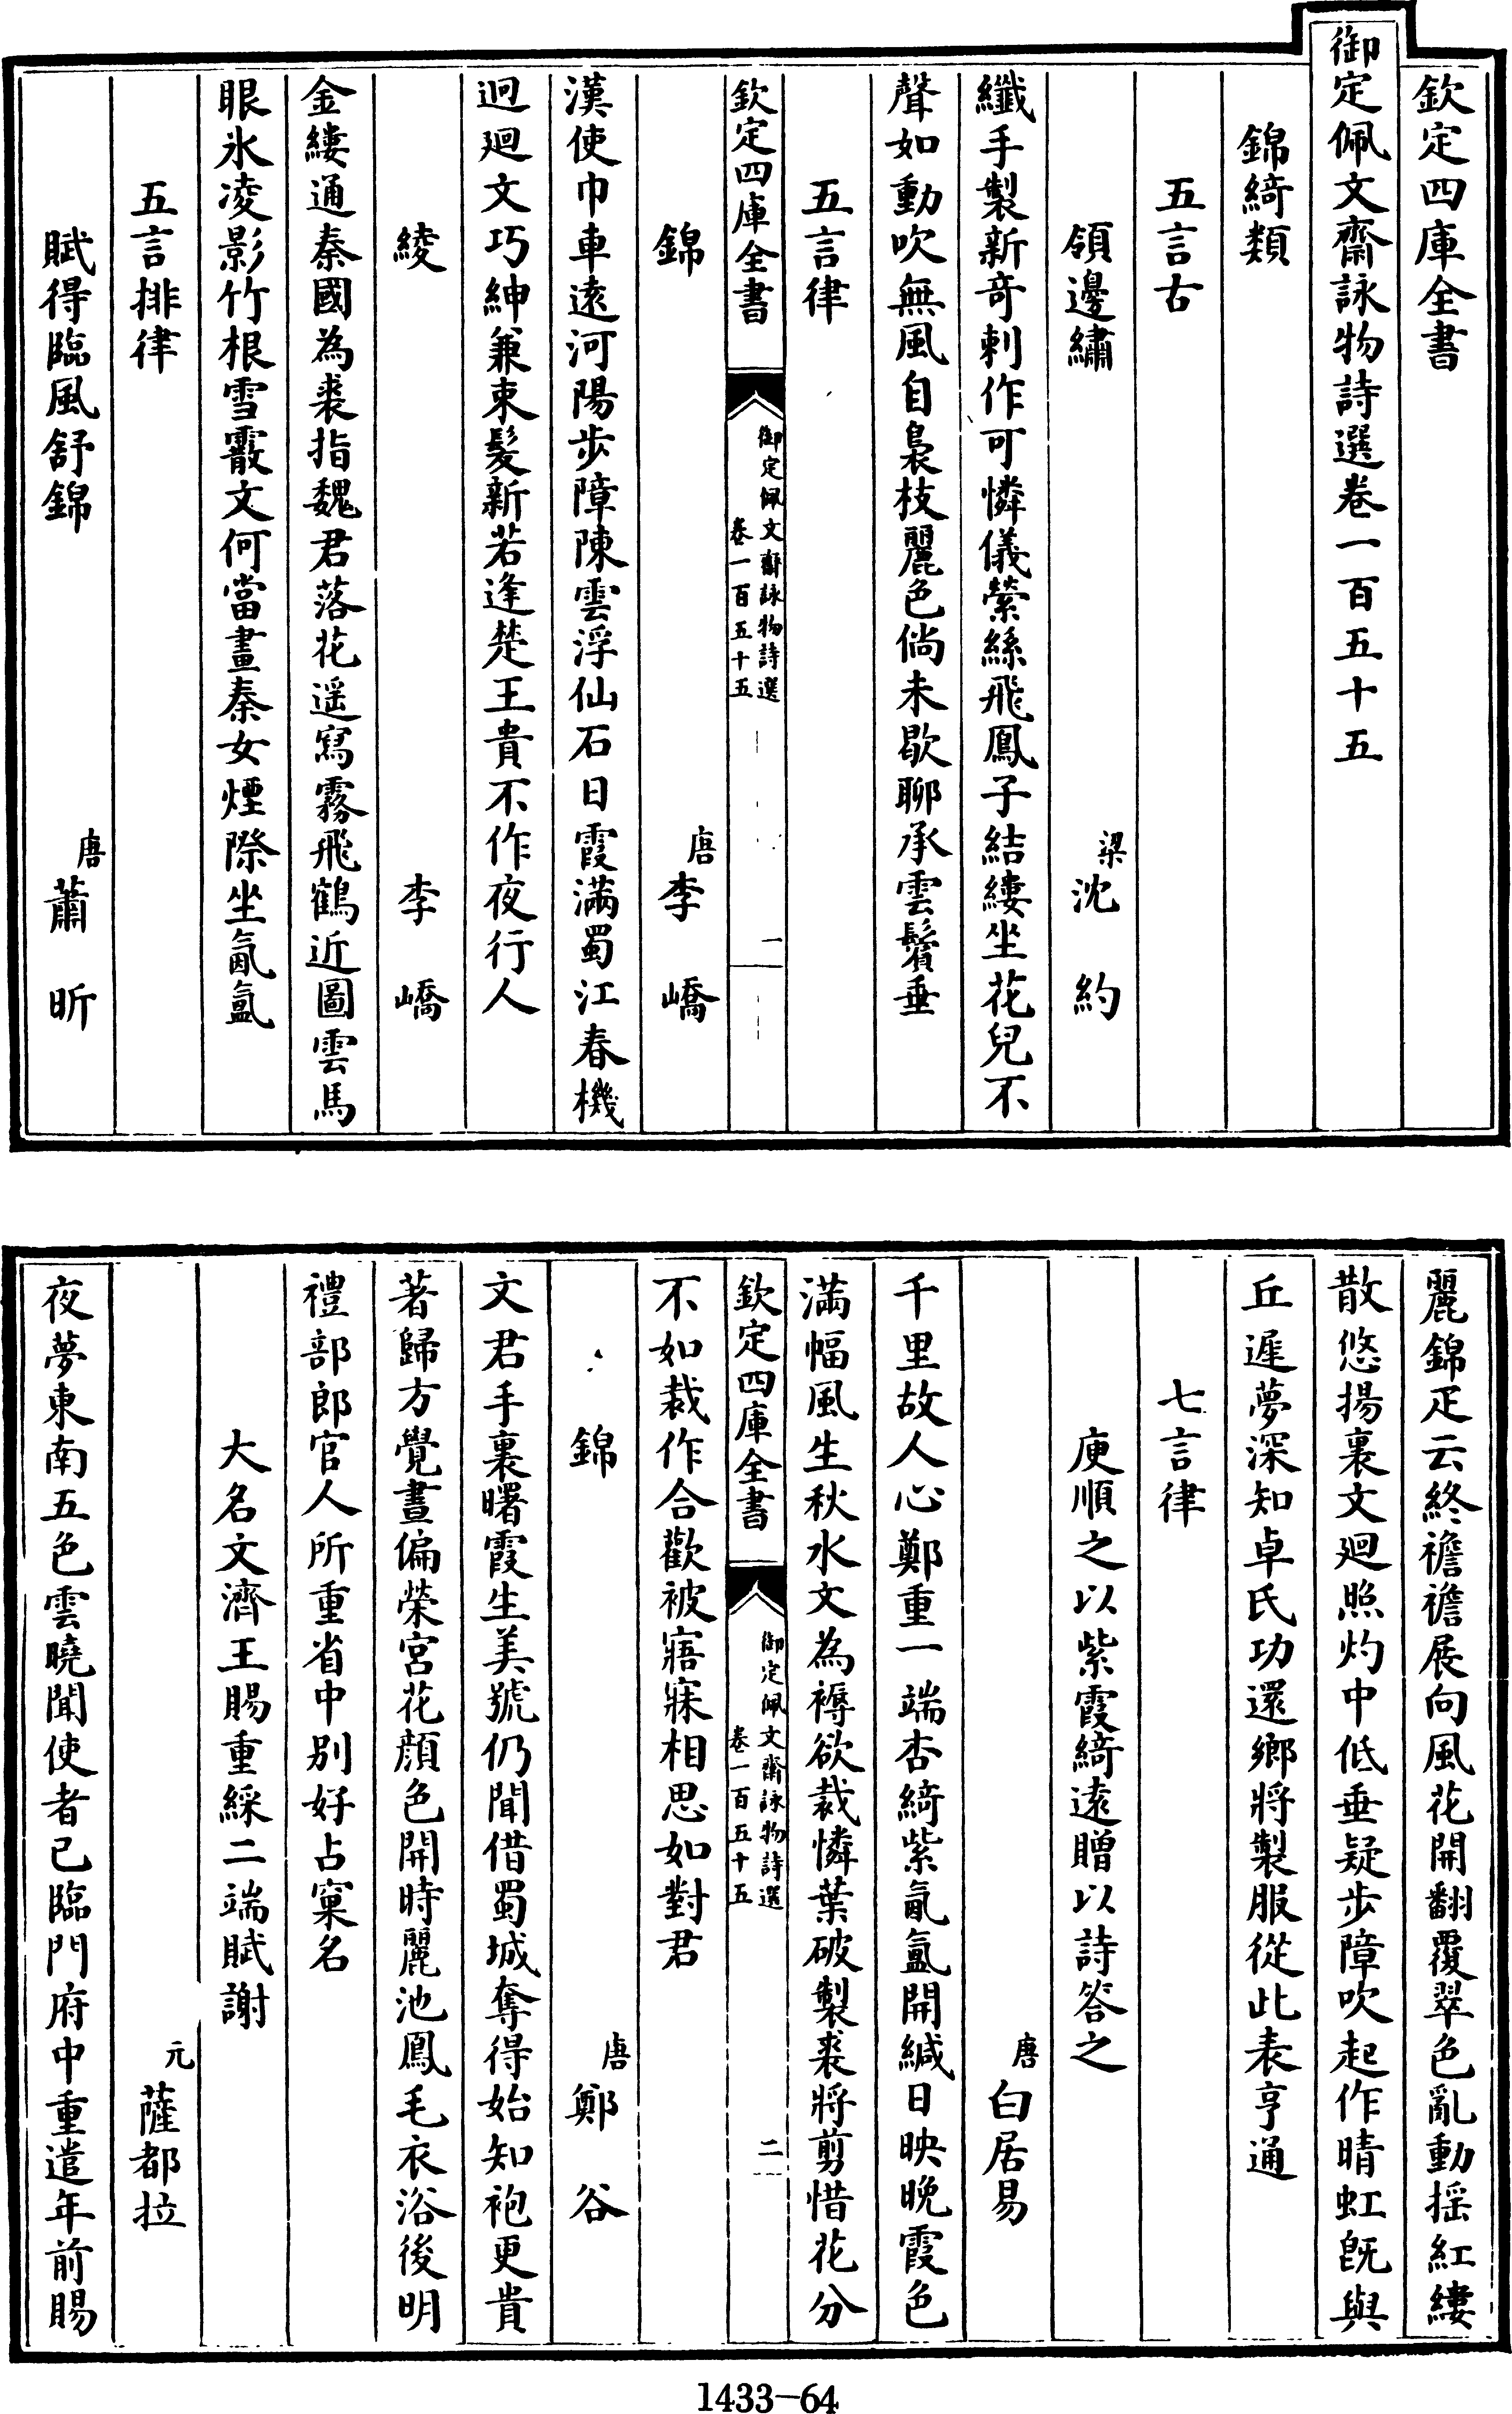 欽定四庫全書
御定佩文齋詠物詩選卷一百五十五
錦綺類
五言古
領邊繡 梁沈約
纖手製新奇刺作可憐儀縈絲飛鳳子結縷坐花兒不
聲如動吹無風自裊枝麗色倘未歇聊承雲鬢垂
五言律
欽定四庫全書
御定佩文齋詠物詩選
卷一百五十五
一
錦 唐李嶠
漢使巾車遠河陽步障陳雲浮仙石日霞滿蜀江春機
迥廻文巧紳兼束髮新若逢楚王貴不作夜行人
綾 李嶠
金縷通秦國為裘指魏君落花遥寫霧飛鶴近圖雲馬
眼氷凌影竹根雪霰文何當畫秦女煙際坐氤氲
五言排律
賦得臨風舒錦 唐蕭昕
麗錦疋云終襜襜展向風花開翻覆翠色亂動揺紅縷
散悠揚裏文廻照灼中低垂疑步障吹起作晴虹旣與
丘遲夢深知卓氏功還鄉將製服從此表亨通
七言律
庾順之以紫霞綺遠贈以詩答之
唐白居易
千里故人心鄭重一端杏綺紫氤氲開緘日映晚霞色
滿幅風生秋水文為褥欲裁憐葉破製裘將剪惜花分
欽定四庫全書
御定佩文齋詠物詩選
卷一百五十五
二
不如裁作合歡被寤寐相思如對君
錦 唐鄭谷
文君手裏曙霞生美號仍聞借蜀城奪得始知袍更貴
著歸方覺晝偏榮宮花顔色開時麗池鳳毛衣浴後明
禮部郎官人所重省中别好占窠名
大名文濟王賜重綵二端賦謝
元薩都拉
夜夢東南五色雲曉聞使者已臨門府中重遣年前賜
1433-64